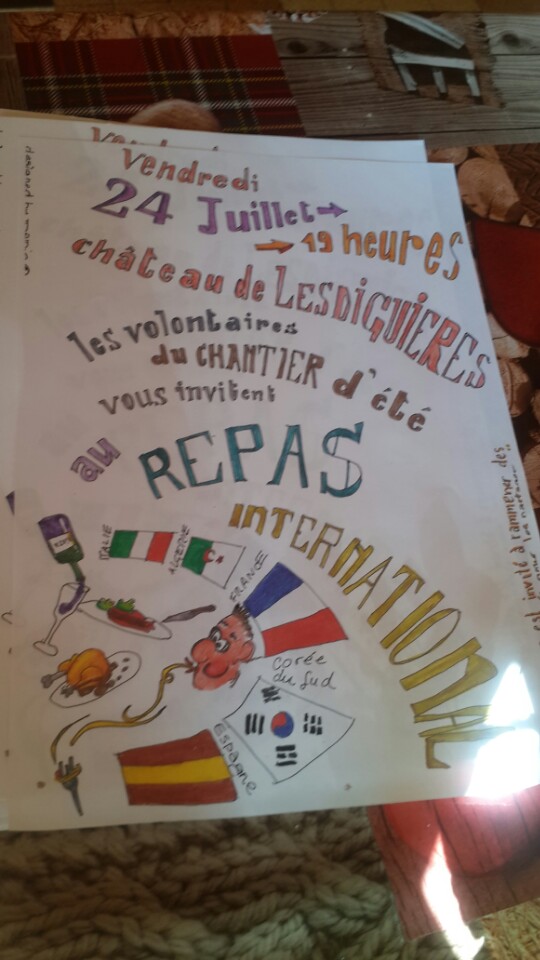 vendredi
24 Juillet →
→ 19 heures
château de LESDIGUIÈRES
les volontaires
du CHANTIER d'été
vous invitent
au REPAS
INTERNATIONAL
ITALIE
ALGERIE
FRANCE
Corée
du Sud
Espagne
est invité à rammener des